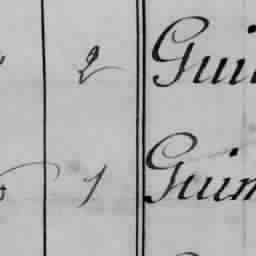 2 Gui
1 Guim